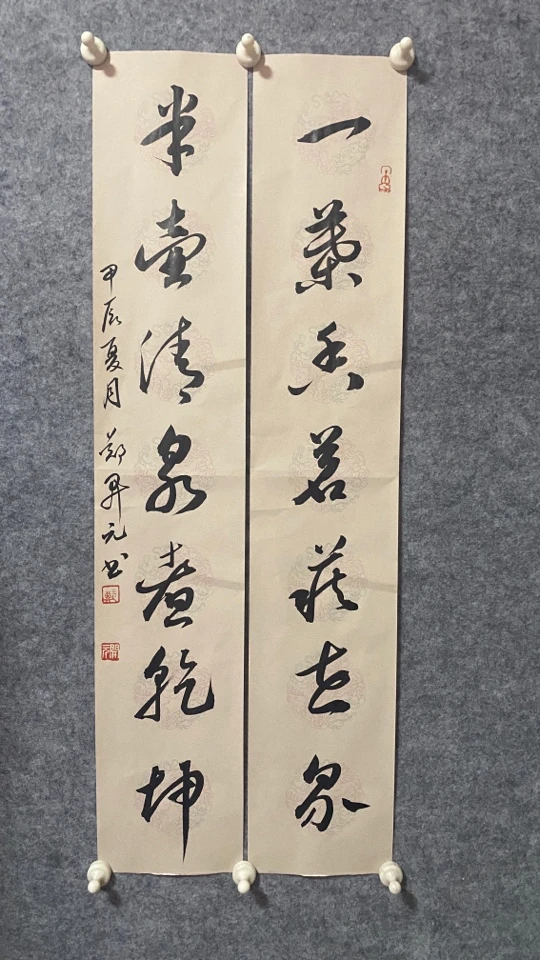 一叶香茗藏世界
半壶清泉煮乾坤
甲辰夏月 郑昇元书